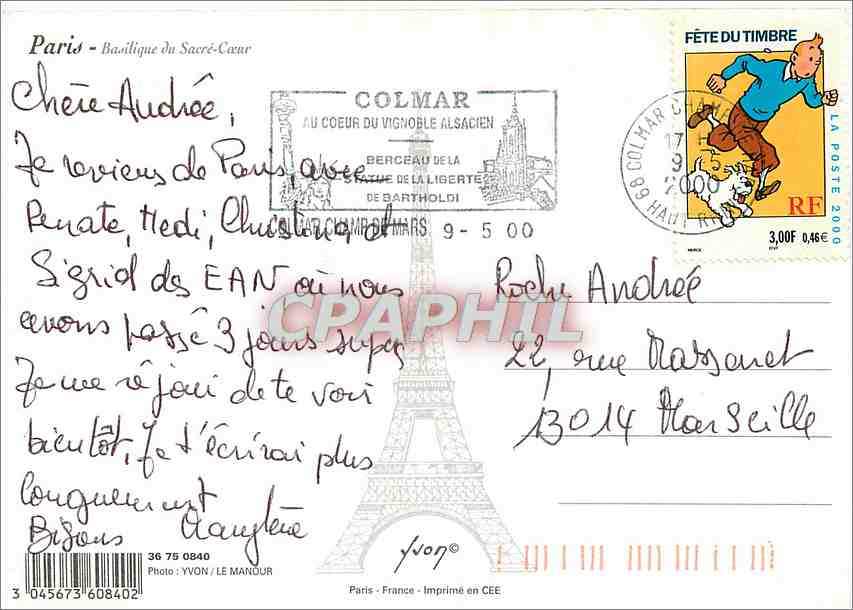 Paris - Basilique du Sacré-Cœur
Chère Andrée,
Je reviens de Paris avec
Renate, Hedi, Christina et
Sigrid des EAN où nous
avons passé 3 jours super
Je me réjoui de te voir
bientôt, Je t'écrirai plus
longuement
Bisous
COLMAR
AU COEUR DU VIGNOBLE ALSACIEN
BERCEAU DE LA
STATUE DE LA LIBERTE
DE BARTHOLDI
COLMAR CHAMP DE MARS 9-5 00
68 COLMAR CHAMP
17 H
9-5
2000
HAUT RHIN
FÊTE DU TIMBRE
LA POSTE 2000
RF
3,00F 0,46€
HERGÉ
ITVF
Roche Andrée
22, rue Massenet
13014 Marseille
CPAPHIL
yvon©
36 75 0840
Photo : YVON / LE MANOUR
3 045673 608402
Paris - France - Imprimé en CEE